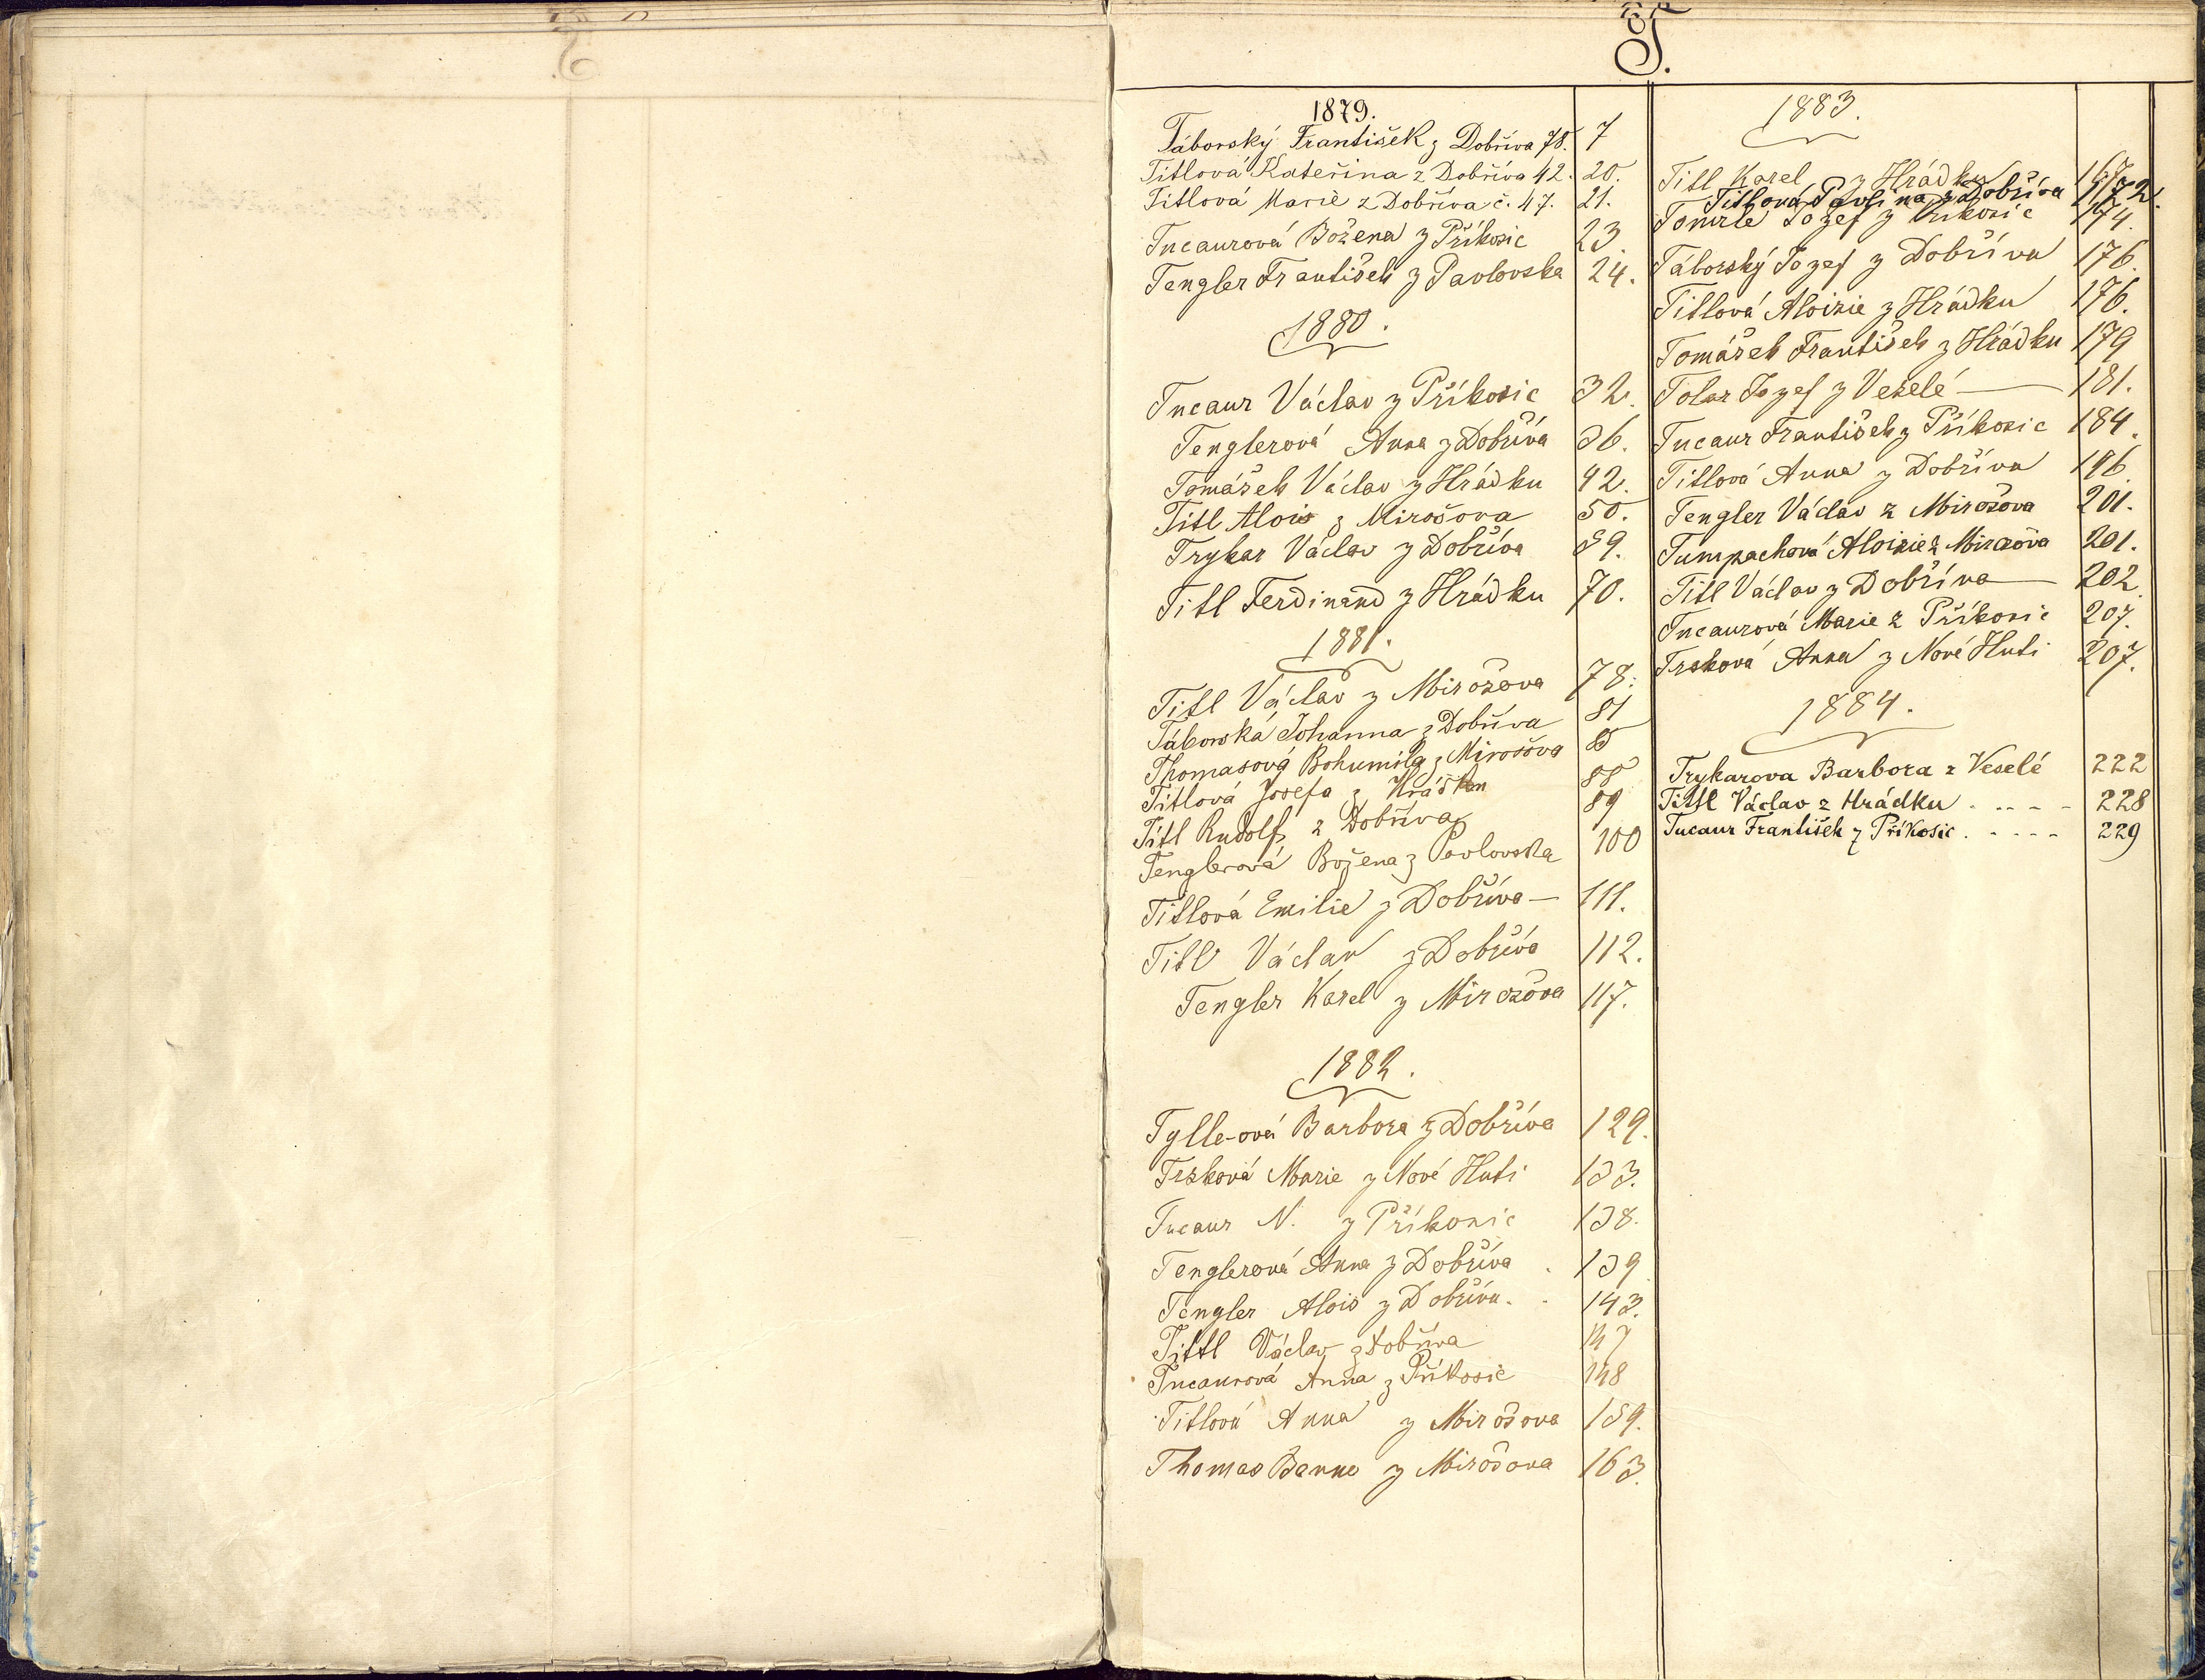 T.
1879.
Táborský František z Dobříva 78. 7
Titlová Kateřina z Dobříva 42. 20.
Titlová Marie z Dobříva č. 47. 21.
Tucaurová Božena z Příkosic 23.
Tengler František z Pavlovska 24.
1880.
Tucaur Václav z Příkosic 32.
Tenglerová Anna z Dobříva 36.
Tomášek Václav z Hrádku 42.
Titl Alois z Mirošova 50.
Trykar Václav z Dobříva 59.
Titl Ferdinand z Hrádku 70.
1881.
Titl Václav z Mirošova 78.
Táborská Johanna z Dobříva 81
Thomasová Bohumila z Mirošova 85
Titlová Josefa z Hrádku 88
Titl Rudolf z Dobříva 89
Tenglerová Božena z Pavlovska 100
Titlová Emilie z Dobříva — 111.
Titl Václav z Dobříva 112.
Tengler Karel z Mirošova 117.
1882.
Tylle-ová Barbora z Dobříva 129.
Trsková Marie z Nové Huti 133.
Tucaur N. z Příkosic 138.
Tenglerová Anna z Dobříva . 139
Tengler Alois z Dobříva . . 143.
Tittl Václav z Dobříva 147
Tucaurová Anna z Příkosic 148
Titlová Anna z Mirošova 159.
Thomas z Mirošova 163.
1883.
Titl Karel z Hrádku 167
Titlová Pavlina z Dobříva 172.
Tomrle Jozef z Příkosic 174.
Táborský Jozef z Dobříva 176.
Titlová Aloisie z Hrádku 176.
Tomášek František z Hrádku 179
Tolar Jozef z Veselé — 181.
Tucaur František z Příkosic 184.
Titlová Anna z Dobříva 196.
Tengler Václav z Mirošova 201.
Tumpachová Aloisie z Mirošova 201.
Titl Václav z Dobříva — 202.
Tucaurová Marie z Příkosic 207.
Trsková Anna z Nové Huti 207.
1884.
Trykarova Barbora z Veselé 222
Tittl Václav z Hrádku . . . - - 228
Tucaur František z Příkosic . - - - - 229